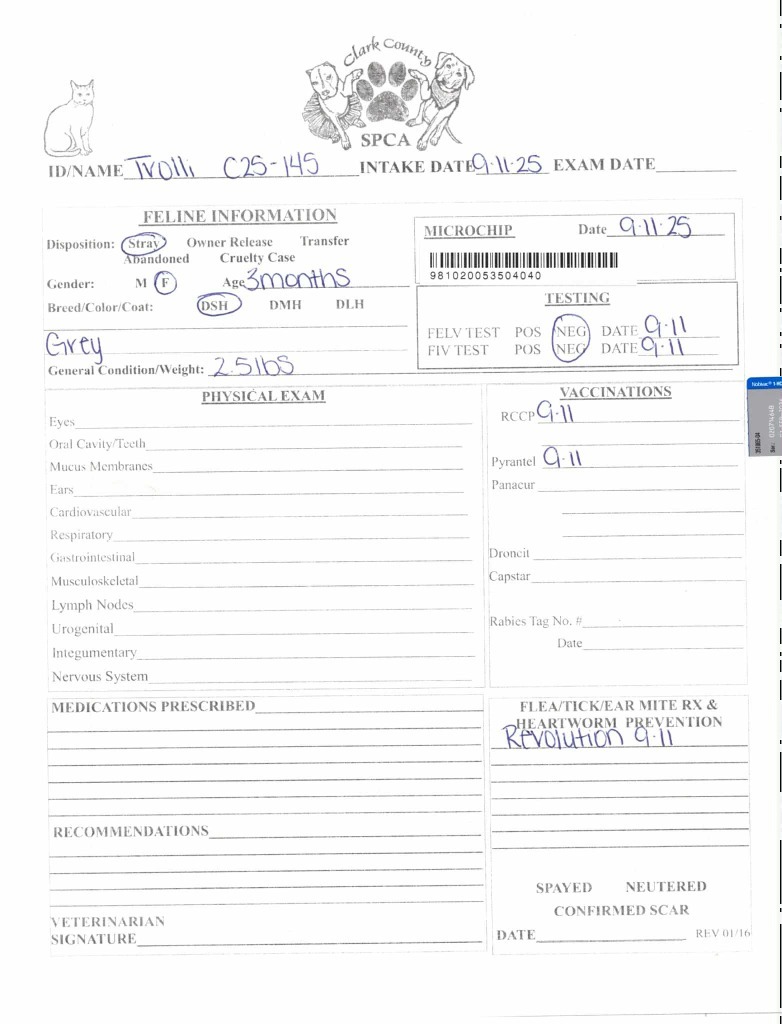 Clark County
SPCA
ID/NAME Trolli C25-145 INTAKE DATE 9-11-25 EXAM DATE
FELINE INFORMATION
Disposition: Stray Owner Release Transfer
Abandoned Cruelty Case
Gender: M F Age 3months
Breed/Color/Coat: DSH DMH DLH
Grey
General Condition/Weight: 2.5lbs
MICROCHIP Date 9-11-25
981020053504040
TESTING
FELV TEST POS NEG DATE 9-11
FIV TEST POS NEG DATE 9-11
PHYSICAL EXAM
Eyes
Oral Cavity/Teeth
Mucus Membranes
Ears
Cardiovascular
Respiratory
Gastrointestinal
Musculoskeletal
Lymph Nodes
Urogenital
Integumentary
Nervous System
VACCINATIONS
RCCP 9-11
Pyrantel 9-11
Panacur
Droncit
Capstar
Rabies Tag No. #
Date
MEDICATIONS PRESCRIBED
RECOMMENDATIONS
VETERINARIAN
SIGNATURE
FLEA/TICK/EAR MITE RX &
HEARTWORM PREVENTION
Revolution 9-11
SPAYED NEUTERED
CONFIRMED SCAR
DATE REV 01/16